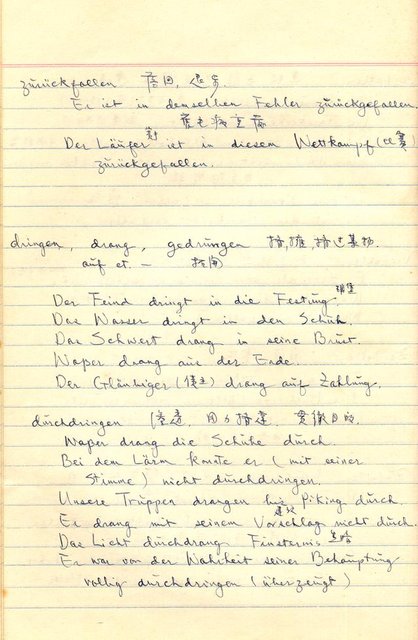 zurückfallen 落回, 退步.
Er ist in demselben Fehler zurückgefallen.
舊毛病重犯
Der Läufer ist in diesem Wettkampf (比賽)
zurückgefallen.
dringen, drang, gedrungen 擠,擁,擠过某物.
auf et. —
Der Feind dringt in die Festung.
Das Wasser dringt in den Schuh.
Das Schwert drang in seine Brust.
Waßer drang aus der Erde.
Der Gläubiger (債主) drang auf Zahlung.
durchdringen
Waßer drang die Schuhe durch.
Bei dem Lärm konnte er (mit seiner
Stimme) nicht durchdringen.
Unsere Truppen drangen bis Piking durch.
Er drang mit seinem Vorschlag nicht durch.
Das Licht durchdrang Finsternis 黑暗
Er war von der Wahrheit seiner Behauptung
völlig durchdringen (überzeugt)